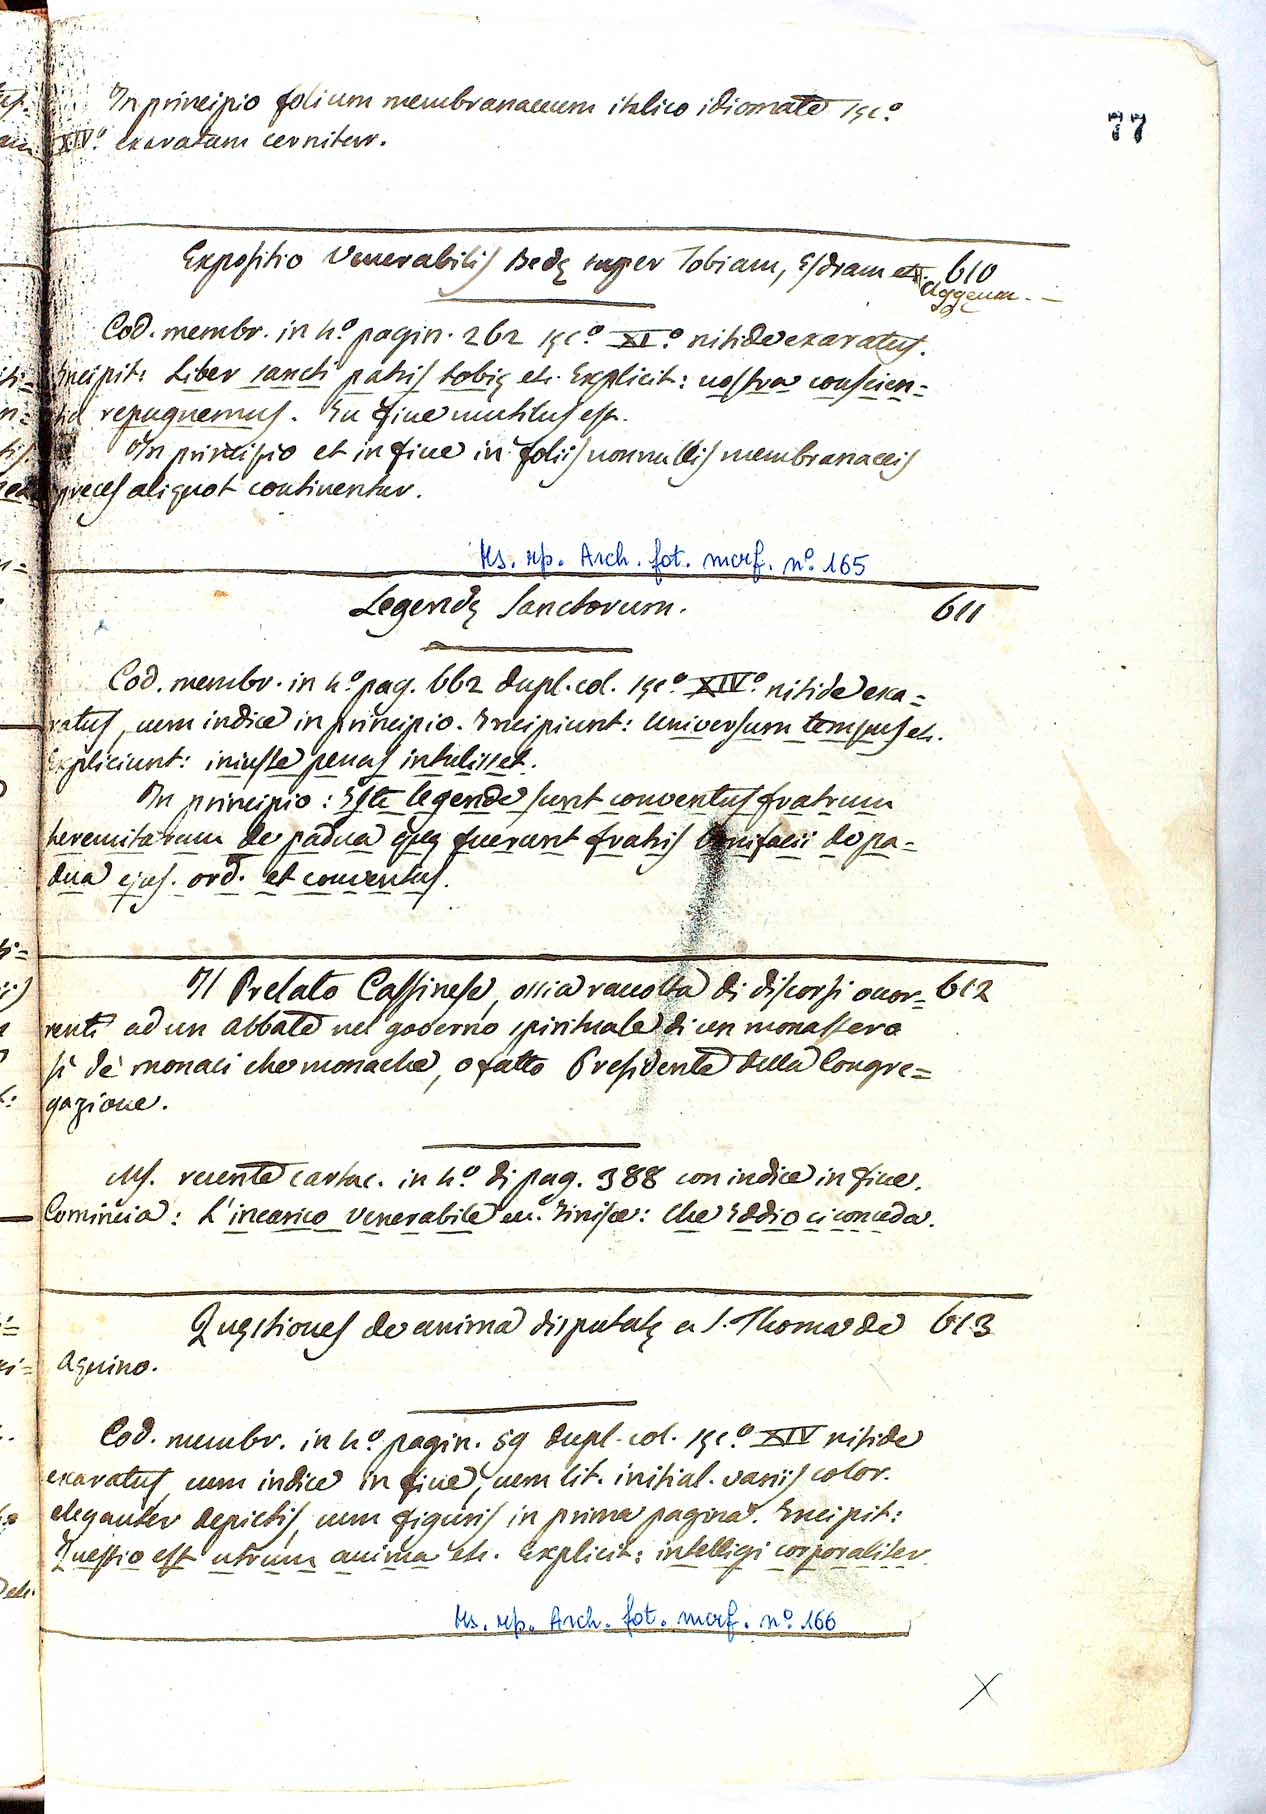 77
In principio folium membranaceum italico idiomate sęc.º
XIV.º exaratum cernitur.
Expositio Venerabilis Bedę super Tobiam, Esdram et 610
Aggeum.
Cod. membr. in 4.º pagin. 262 sęc.º XI.º nitide exaratus.
Incipit: Liber sancti patris tobię etc. Explicit: nostra conscien=
tia repugnemus. In fine mutilus est.
In principio et in fine in foliis nonnullis membranaceis
preces aliquot continentur.
Ms. rip. Arch. fot. morf. nº. 165
Legendę Sanctorum. 611
Cod. membr. in 4.º pag. 662 dupl. col. sęc.º XIV.º nitide exa=
ratus, cum indice in principio. Incipiunt: Universum tempus etc.
Expliciunt: iniuste penas intulisset.
In principio: Iste legende sunt conventus fratrum
heremitarum de padua quę fuerunt fratris bonifacii de pa=
dua ejus. ord. et conventus.
Il Prelato Cassinese, ossia raccolta di discorsi ocor= 612
renti ad un Abbate nel governo spirituale di un monastero
sì de' monaci che monache, o fatto Presidente della Congre=
gazione.
Ms. recente cartac. in 4.º di pag. 388 con indice in fine.
Comincia: L'incarico venerabile ec. Finisce: che Iddio ci conceda.
Quęstiones de anima disputatę a S. Thoma de 613
Aquino.
Cod. membr. in 4.º pagin. 59 dupl. col. sęc.º XIV nitide
exaratus, cum indice in fine, cum lit. initial. variis color.
eleganter depictis, cum figuris in prima pagina. Incipit:
Questio est utrum anima etc. Explicit: intelligi corporaliter.
Ms. rip. Arch. fot. morf. nº. 166
X